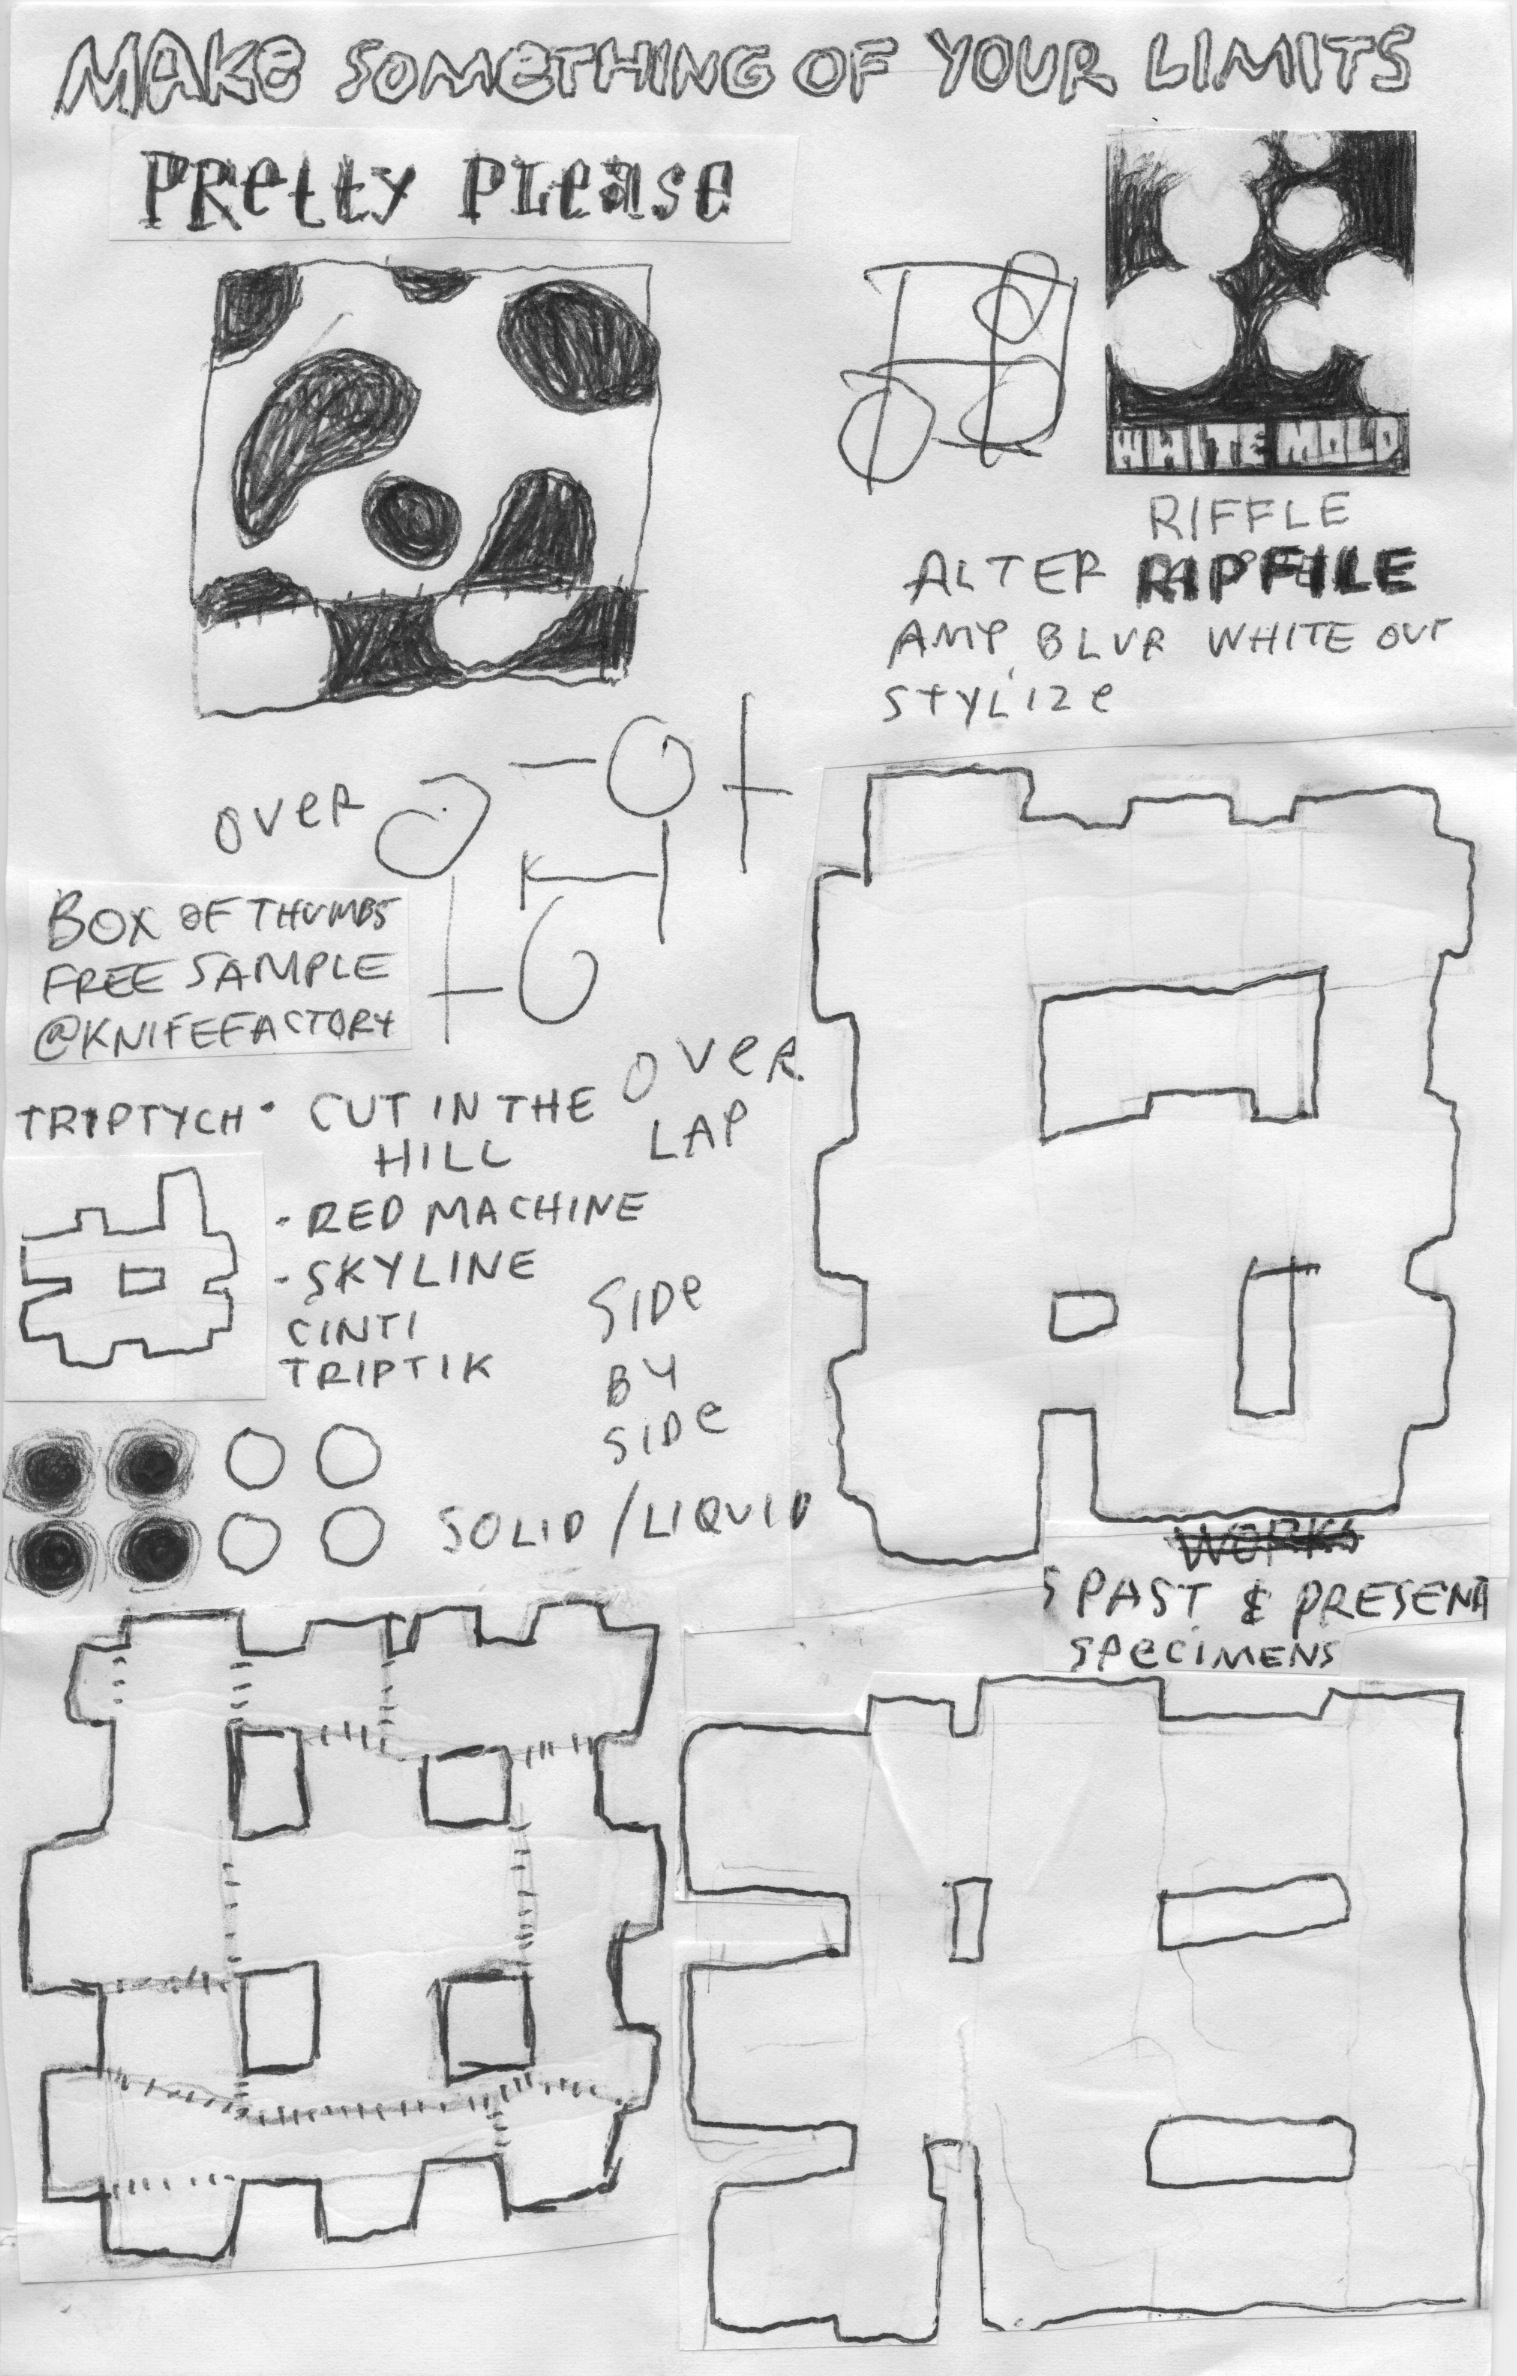 MAKe SOMeTHING OF YOUR LIMITS
PRetty PLease
WHITE MOLD
RIFFLE
ALTER RIPFILE
AMP BLUR WHITE OUT
STYLIZe
OVeR
BOX OF THUMBS
FREE SAMPLE
@KNIFEFACTORY
OVeR
LAP
TRIPTYCH • CUT IN THE
HILL
- RED MACHINE
- SKYLINE
CINTI
TRIPTIK
SIDe
BY
SIDe
SOLID / LIQUID
WORKS
PAST & PRESENT
SPeCIMENS